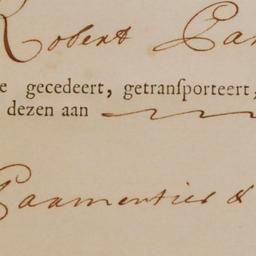 Robert Par
e gecedeert, getransporteert,
dezen aan
Paarmentier &